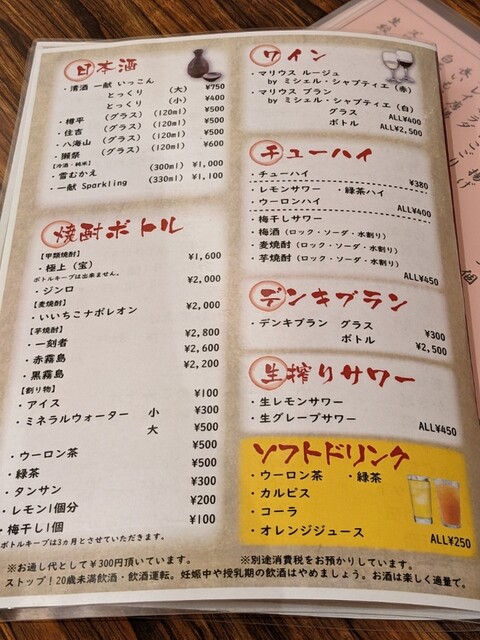 日本酒
・清酒 一献 いっこん
とっくり (大) ¥750
とっくり (小) ¥400
・樽平 (グラス) (120ml) ¥500
・住吉 (グラス) (120ml) ¥500
・八海山 (グラス) (120ml) ¥500
・獺祭 (グラス) (120ml) ¥600
【冷酒・純米】
・雪むかえ (300ml) ¥1,000
・一献 Sparkling (330ml) ¥1,100
焼酎ボトル
【甲類焼酎】
・極上（宝） ¥1,600
ボトルキープは出来ません。
・ジンロ ¥2,000
【麦焼酎】
・いいちこナポレオン ¥2,000
【芋焼酎】
・一刻者 ¥2,800
・赤霧島 ¥2,600
・黒霧島 ¥2,200
【割り物】
・アイス ¥100
・ミネラルウォーター 小 ¥300
大 ¥500
・ウーロン茶 ¥500
・緑茶 ¥500
・タンサン ¥300
・レモン1個分 ¥200
・梅干し1個 ¥100
ボトルキープは3ヵ月とさせていただきます。
ワイン
・マリウス ルージュ
by ミシェル・シャプティエ (赤)
・マリウス ブラン
by ミシェル・シャプティエ (白)
グラス ALL¥400
ボトル ALL¥2,500
チューハイ
・チューハイ ¥380
・レモンサワー ・緑茶ハイ
・ウーロンハイ ALL¥400
・梅干しサワー
・梅酒（ロック・ソーダ・水割り）
・麦焼酎（ロック・ソーダ・水割り）
・芋焼酎（ロック・ソーダ・水割り）
ALL¥450
デンキブラン
・デンキブラン グラス ¥300
ボトル ¥2,500
生搾りサワー
・生レモンサワー
・生グレープサワー
ALL¥450
ソフトドリンク
・ウーロン茶 ・緑茶
・カルピス
・コーラ
・オレンジジュース
ALL¥250
※お通し代として￥300円頂いています。 ※別途消費税をお預かりしています。
ストップ！20歳未満飲酒・飲酒運転。妊娠中や授乳期の飲酒はやめましょう。お酒は楽しく適量で。